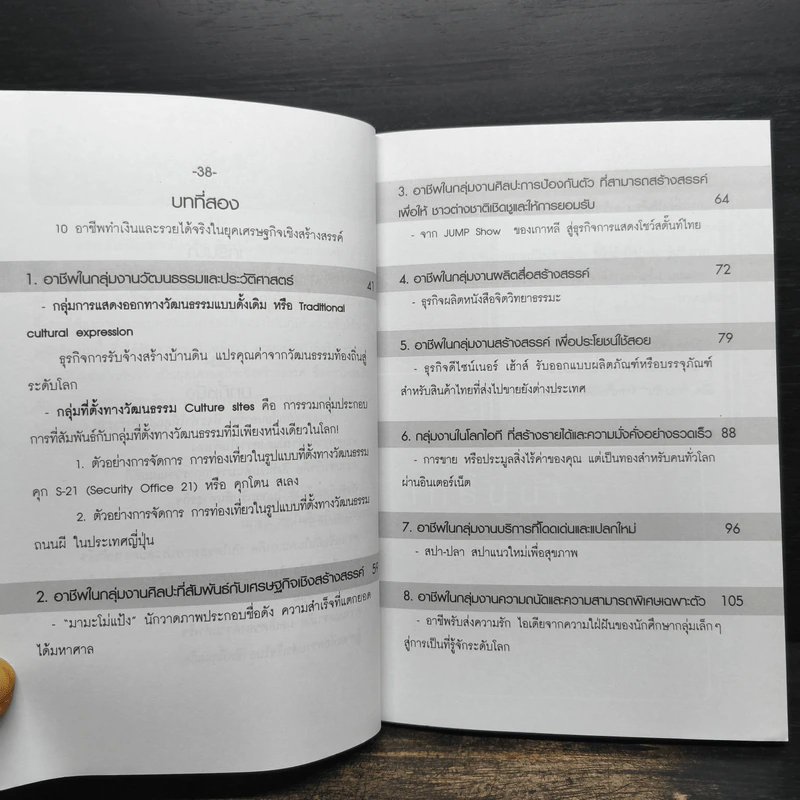 -38-
บทที่สอง
10 อาชีพทำเงินและรวยได้จริงในยุคเศรษฐกิจเชิงสร้างสรรค์
1. อาชีพในกลุ่มงานวัฒนธรรมและประวัติศาสตร์ 41
- กลุ่มการแสดงออกทางวัฒนธรรมแบบดั้งเดิม หรือ Traditional
cultural expression
ธุรกิจการรับจ้างสร้างบ้านดิน แปรคุณค่าจากวัฒนธรรมท้องถิ่นสู่
ระดับโลก
- กลุ่มที่ตั้งทางวัฒนธรรม Culture sites คือ การรวมกลุ่มประกอบ
การที่สัมพันธ์กับกลุ่มที่ตั้งทางวัฒนธรรมที่มีเพียงหนึ่งเดียวในโลก!
1. ตัวอย่างการจัดการ การท่องเที่ยวในรูปแบบที่ตั้งทางวัฒนธรรม
คุก S-21 (Security Office 21) หรือ คุกโตน สเลง
2. ตัวอย่างการจัดการ การท่องเที่ยวในรูปแบบที่ตั้งทางวัฒนธรรม
ถนนผี ในประเทศญี่ปุ่น
2. อาชีพในกลุ่มงานศิลปะที่สัมพันธ์กับเศรษฐกิจเชิงสร้างสรรค์ 59
- "มามะโม่แป้ง" นักวาดภาพประกอบชื่อดัง ความสำเร็จที่แตกยอด
ได้มหาศาล
3. อาชีพในกลุ่มงานศิลปะการป้องกันตัว ที่สามารถสร้างสรรค์
เพื่อให้ ชาวต่างชาติเชิดชูและให้การยอมรับ 64
- จาก JUMP Show ของเกาหลี สู่ธุรกิจการแสดงโชว์สตั๊นท์ไทย
4. อาชีพในกลุ่มงานผลิตสื่อสร้างสรรค์ 72
- ธุรกิจผลิตหนังสือจิตวิทยาธรรมะ
5. อาชีพในกลุ่มงานสร้างสรรค์ เพื่อประโยชน์ใช้สอย 79
- ธุรกิจดีไซน์เนอร์ เฮ้าส์ รับออกแบบผลิตภัณฑ์หรือบรรจุภัณฑ์
สำหรับสินค้าไทยที่ส่งไปขายยังต่างประเทศ
6. กลุ่มงานในโลกไอที ที่สร้างรายได้และความมั่งคั่งอย่างรวดเร็ว 88
- การขาย หรือประมูลสิ่งไร้ค่าของคุณ แต่เป็นทองสำหรับคนทั่วโลก
ผ่านอินเตอร์เน็ต
7. อาชีพในกลุ่มงานบริการที่โดดเด่นและแปลกใหม่ 96
- สปา-ปลา สปาแนวใหม่เพื่อสุขภาพ
8. อาชีพในกลุ่มงานความถนัดและความสามารถพิเศษเฉพาะตัว 105
- อาชีพรับส่งความรัก ไอเดียจากความใฝ่ฝันของนักศึกษากลุ่มเล็กๆ
สู่การเป็นที่รู้จักระดับโลก